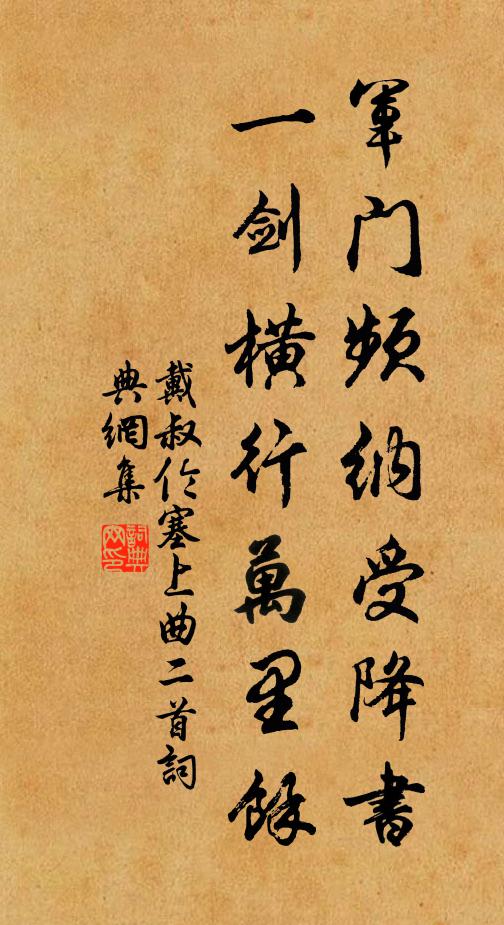 軍门頻納受降書
一剑横行萬里餘
戴叔伦塞上曲二首詞
典網集
詞典网印